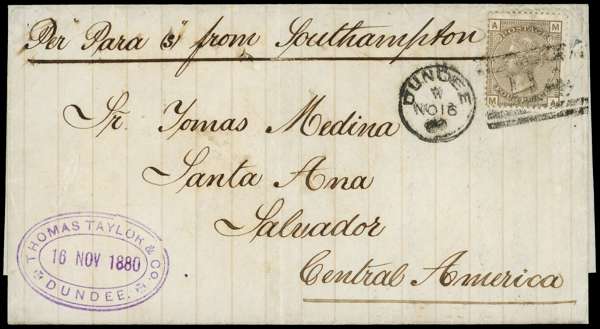 Per "Para (s)" from Southampton
A M
POSTAGE
M A
DUNDEE
NO 16
Sr. Tomas Medina
Santa Ana
Salvador
Central America
THOMAS TAYLOR & Co
16 NOV 1880
DUNDEE.